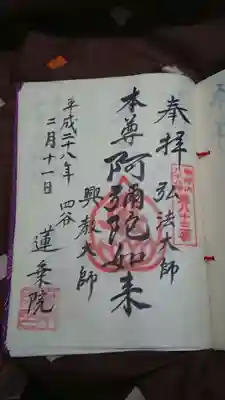 奉拝
弘法大師
本尊阿彌陀如来
興教大師
四谷
蓮乗院
平成二十八年
二月十一日